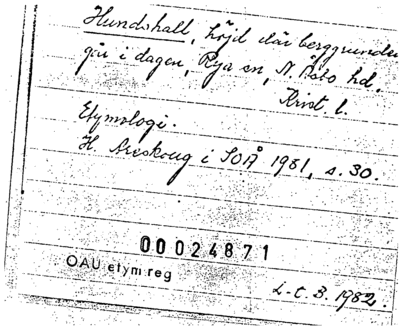 Hundshall, höjd där berggrunden
går i dagen, Rya sn, N. Åsbo hd,
Krist. l.
Etymologi.
H. Areskoug i SOÅ 1981, s. 30.
00024871
OAU etym reg
L-t. B. 1982.